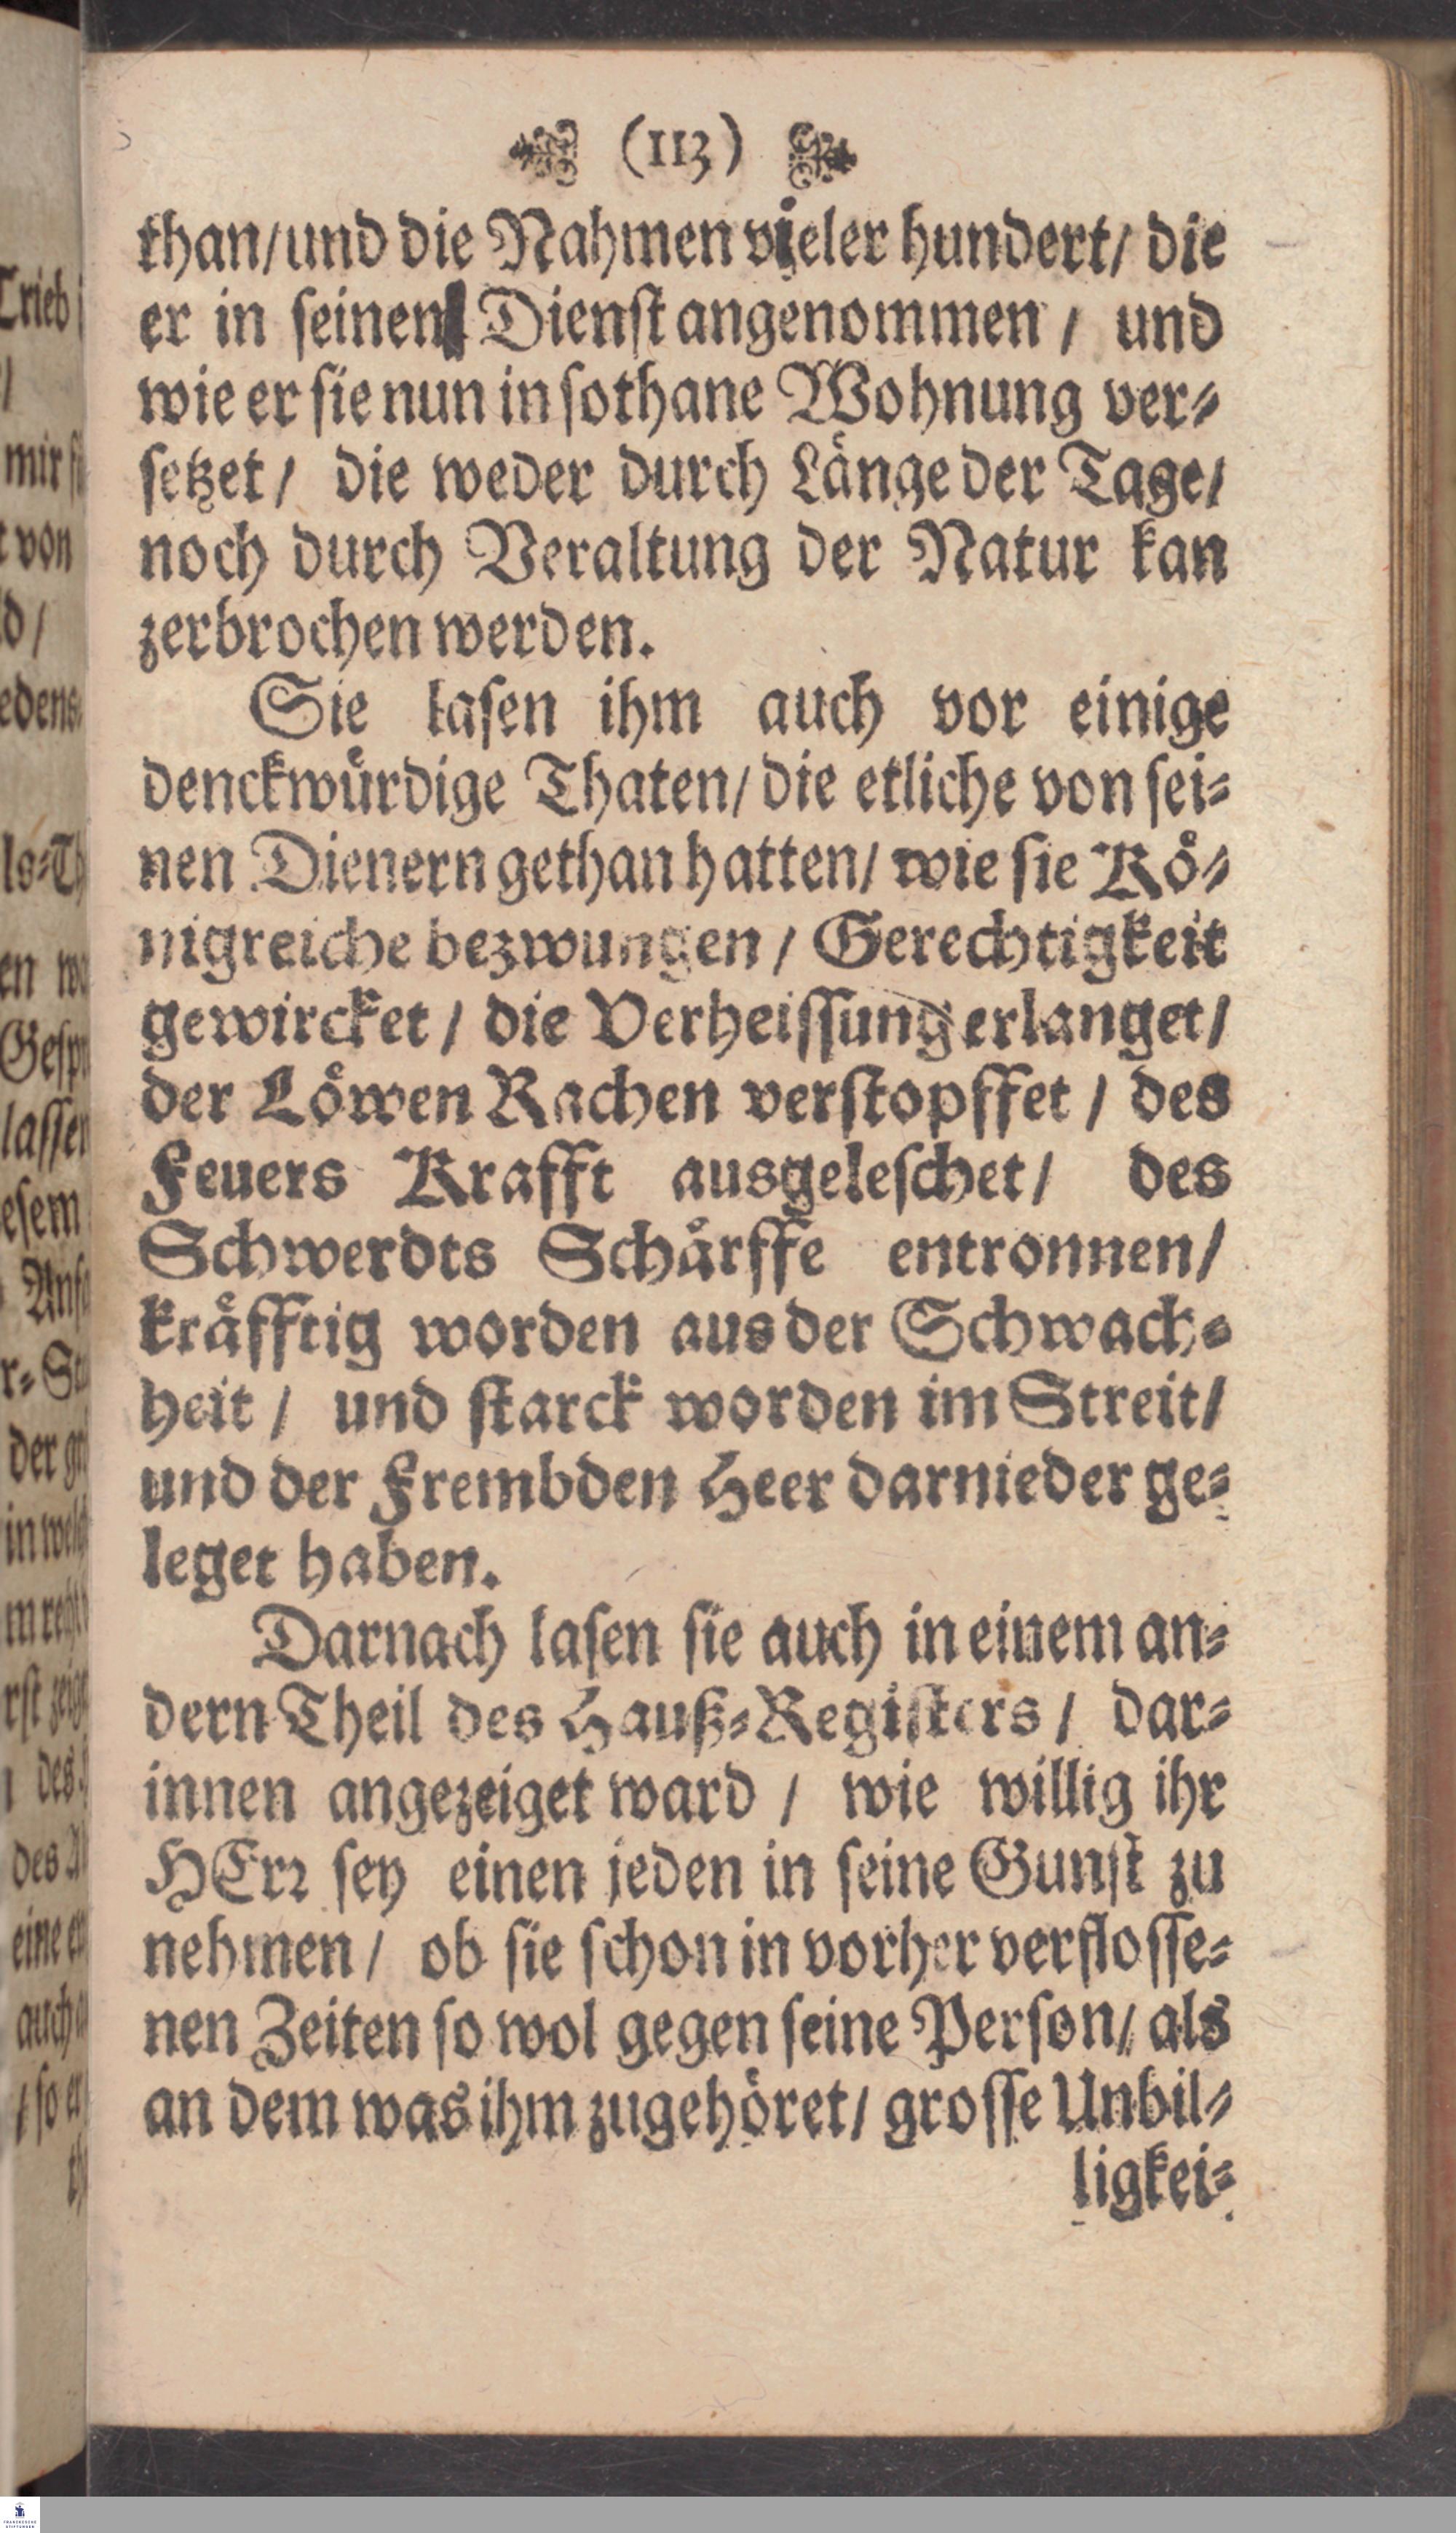 (113)
than/und die Nahmen vieler hundert/ die
er in seinen Dienst angenommen / und
wie er sie nun in sothane Wohnung ver-
setzet / die weder durch Länge der Tage/
noch durch Veraltung der Natur kan
zerbrochen werden.
Sie lasen ihm auch vor einige
denckwürdige Thaten/ die etliche von sei-
nen Dienern gethan hatten/ wie sie Kö-
nigreiche bezwungen / Gerechtigkeit
gewircket / die Verheissung erlanget/
der Löwen Rachen verstopffet / des
Feuers Krafft ausgeleschet/ des
Schwerdts Schärffe entronnen/
kräfftig worden aus der Schwach-
heit / und starck worden im Streit/
und der Frembden Heer darnieder ge-
leget haben.
Darnach lasen sie auch in einem an-
dern Theil des Hauß-Registers / dar-
innen angezeiget ward / wie willig ihr
HErr sey einen jeden in seine Gunst zu
nehmen / ob sie schon in vorher verflosse-
nen Zeiten so wol gegen seine Person/ als
an dem was ihm zugehöret/ grosse Unbil-
ligkei-